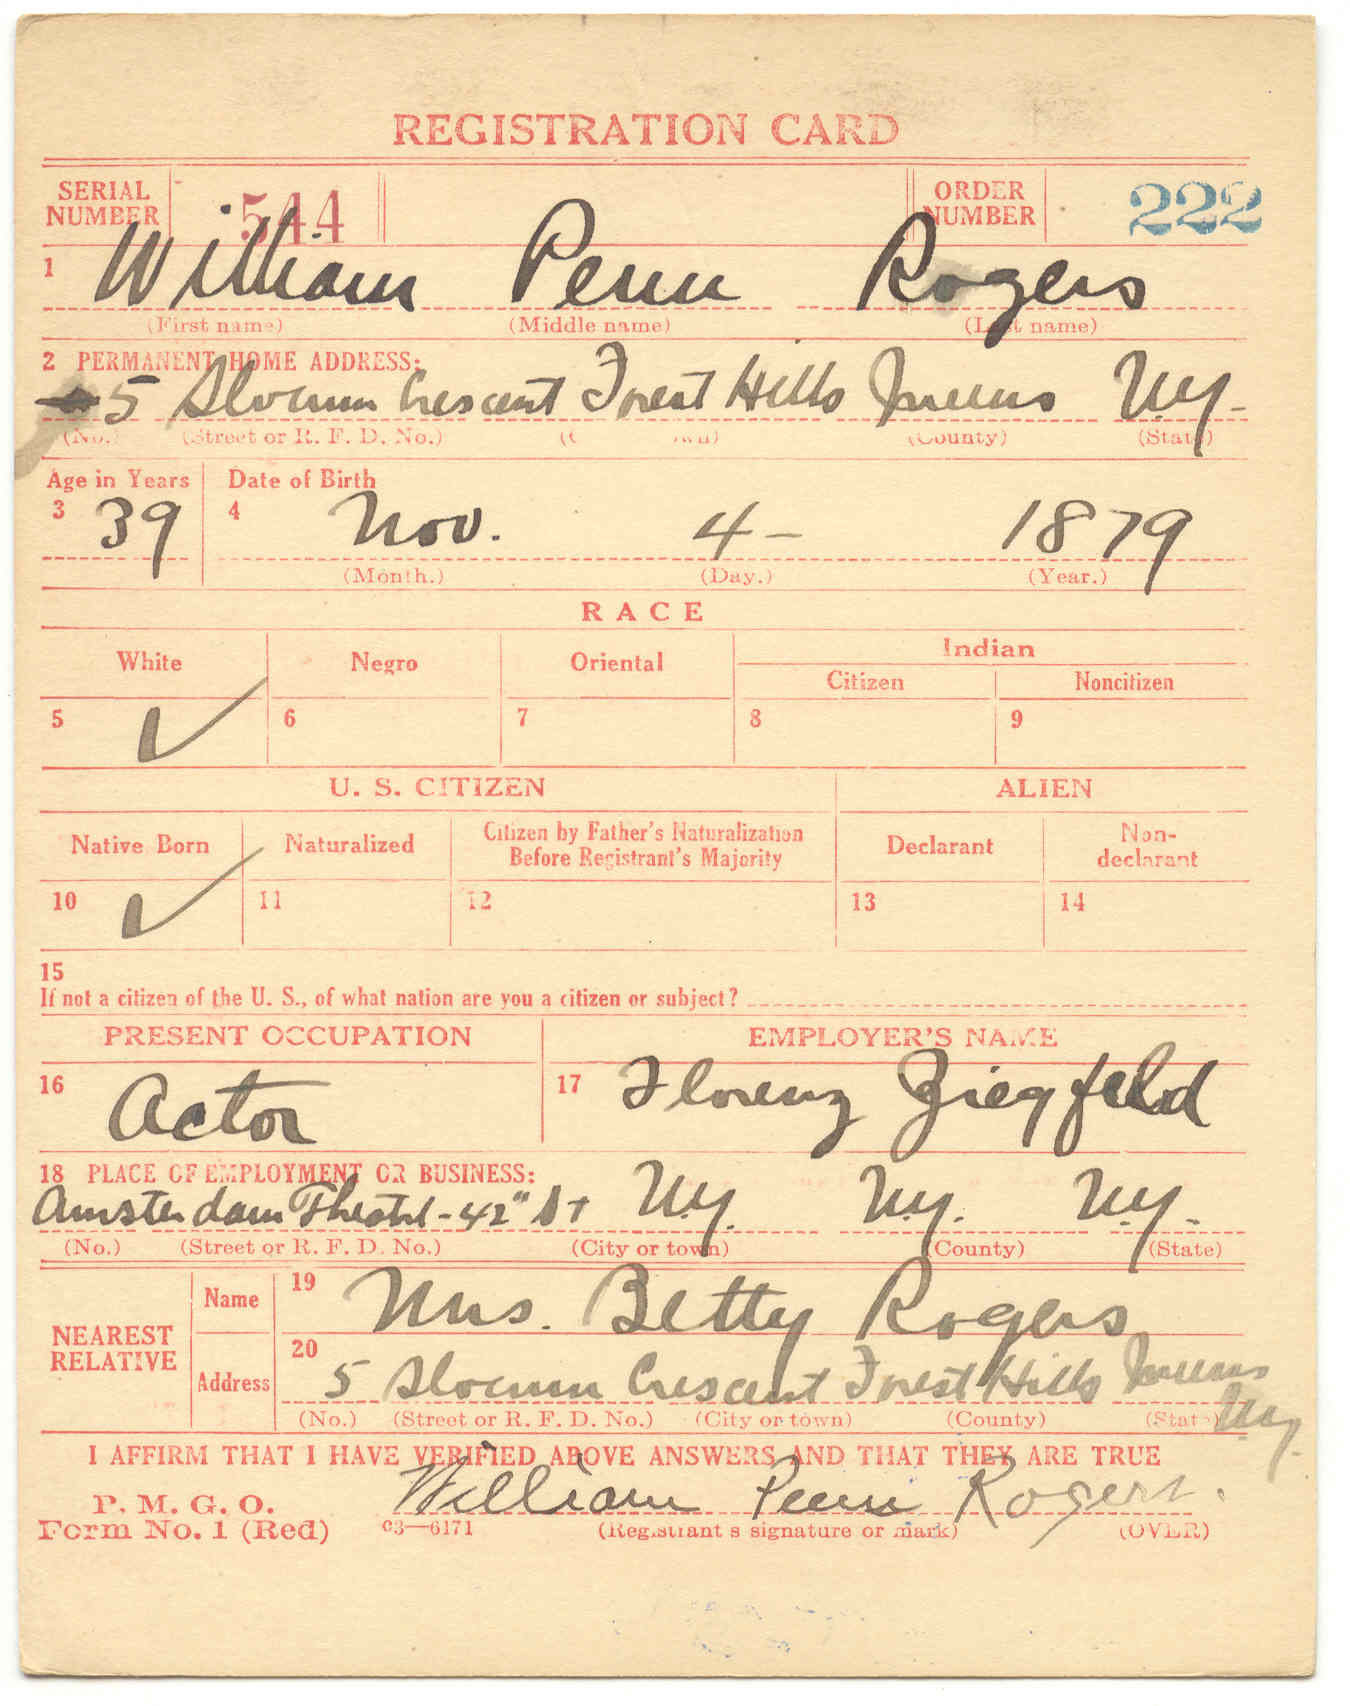 REGISTRATION CARD
SERIAL NUMBER 544 ORDER NUMBER 222
1 William Penn Rogers
(First name) (Middle name) (Last name)
2 PERMANENT HOME ADDRESS:
5 Slocum Crescent Forest Hills Queens N.Y.
(No.) (Street or R. F. D. No.) (County) (State)
Age in Years Date of Birth
3 39 4 Nov. 4 - 1879
(Month.) (Day.) (Year.)
RACE
White Negro Oriental Indian
Citizen Noncitizen
5 ✓ 6 7 8 9
U. S. CITIZEN ALIEN
Native Born Naturalized Citizen by Father's Naturalization Before Registrant's Majority Declarant Non-declarant
10 ✓ 11 12 13 14
15
If not a citizen of the U. S., of what nation are you a citizen or subject?
PRESENT OCCUPATION EMPLOYER'S NAME
16 Actor 17 Florenz Ziegfeld
18 PLACE OF EMPLOYMENT OR BUSINESS:
Amsterdam Theatre - 42" St N.y. N.y. N.y.
(No.) (Street or R. F. D. No.) (City or town) (County) (State)
NEAREST RELATIVE
Name 19 Mrs. Betty Rogers
Address 20 5 Slocum Crescent Forest Hills Queens N.y.
(No.) (Street or R. F. D. No.) (City or town) (County) (State)
I AFFIRM THAT I HAVE VERIFIED ABOVE ANSWERS AND THAT THEY ARE TRUE
William Penn Rogers.
P. M. G. O.
Form No. 1 (Red) 03—6171 (Registrant's signature or mark) (OVER)